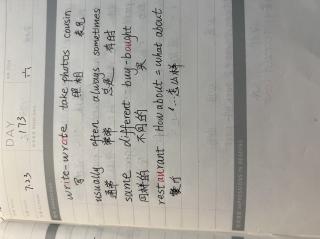 DAY
7.23
六
write-wrote take photos cousin
写 照相 表兄
usually often always sometimes
通常 常常 总是 有时
same different buy-bought
同样的 不同的 买
restaurant How about = what about
餐厅 …怎么样